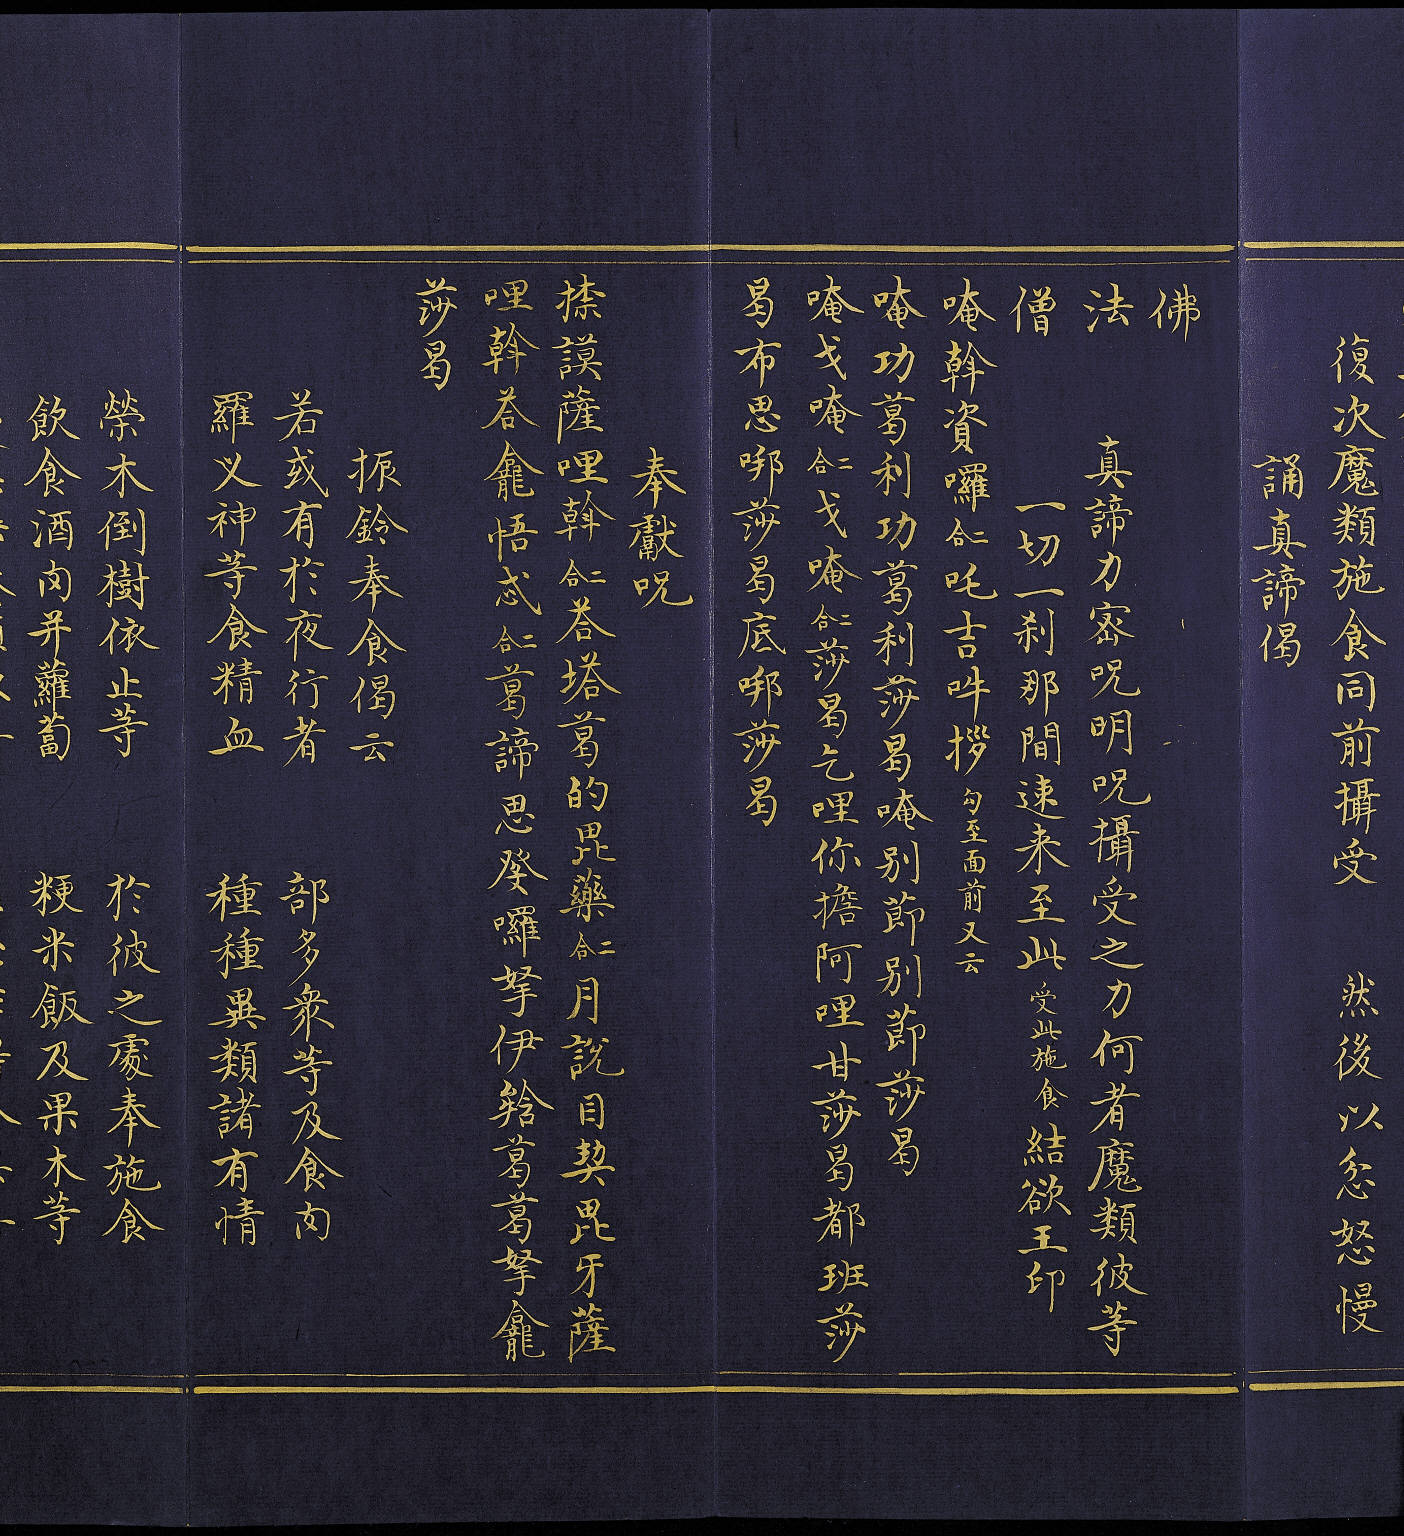 復次魔類施食同前攝受　然後以忿怒慢
誦真諦偈
佛
法　真諦力密呪明呪攝受之力何者魔類彼等
僧　一切一刹那間速来至此受此施食結欲王印
唵斡資囉二合吒吉吽拶勾至面前又云
唵功葛利功葛利莎曷唵別節別節莎曷
唵戈唵二合戈唵二合莎曷乞哩你擔阿哩甘莎曷都班莎
曷布思㖿莎曷底㖿莎曷
奉獻呪
捺謨薩哩斡二合荅塔葛的毘藥二合月說目契毘牙薩
哩斡荅龕悟忒二合葛諦思癹囉拏伊𦂇葛葛拏龕
莎曷
振鈴奉食偈云
若或有於夜行者　部多衆等及食肉
羅叉神等食精血　種種異類諸有情
榮木倒樹依止等　於彼之處奉施食
飲食酒肉并蘿蔔　粳米飯及果木等